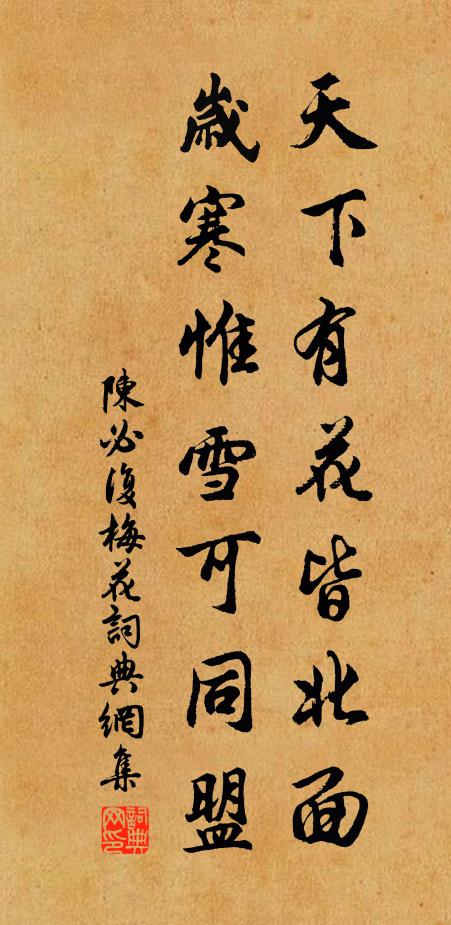 天下有花皆北面
歲寒惟雪可同盟
陳必復梅花詞典網集
詞典网印